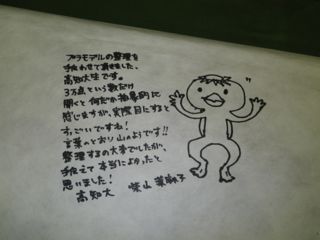 プラモデルの整理を
手伝わせて頂きました、
高知大生です。
3万点という数だけ
聞くと何だか抽象的に
感じますが、実際目にすると
すっごいですね!
言葉のとおり山のようです!!
整理するの大変でしたが、
手伝えて本当によかったと
思いました!
高知大 柴山 菜